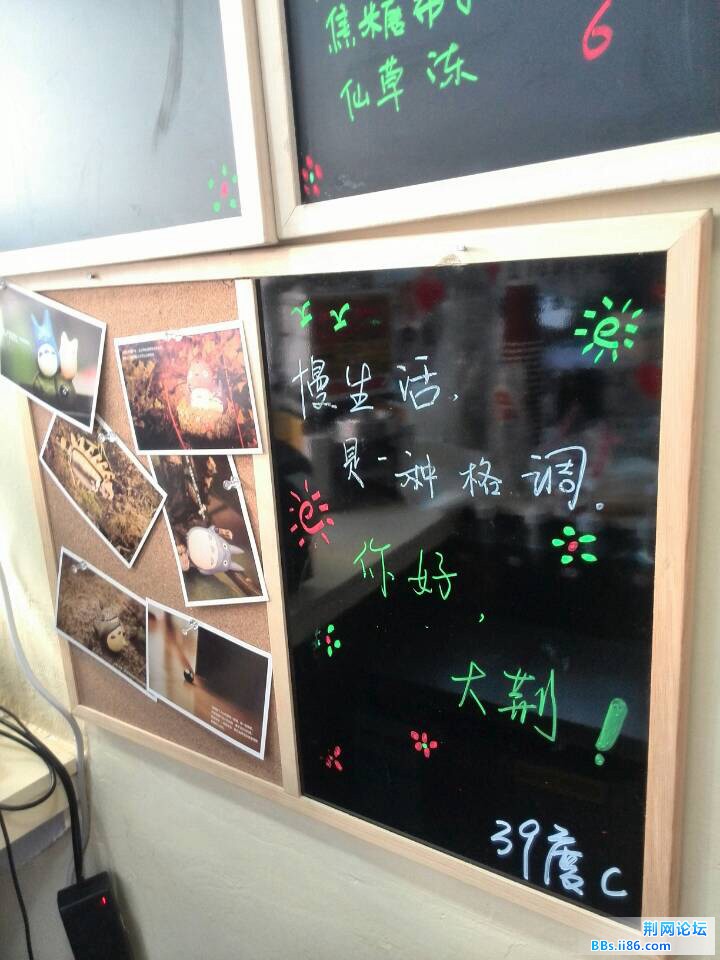 焦糖布丁
6
仙草冻
慢生活，
是一种格调。
你好，
大荆！
39度C
荆网论坛
BBs.ii86.com